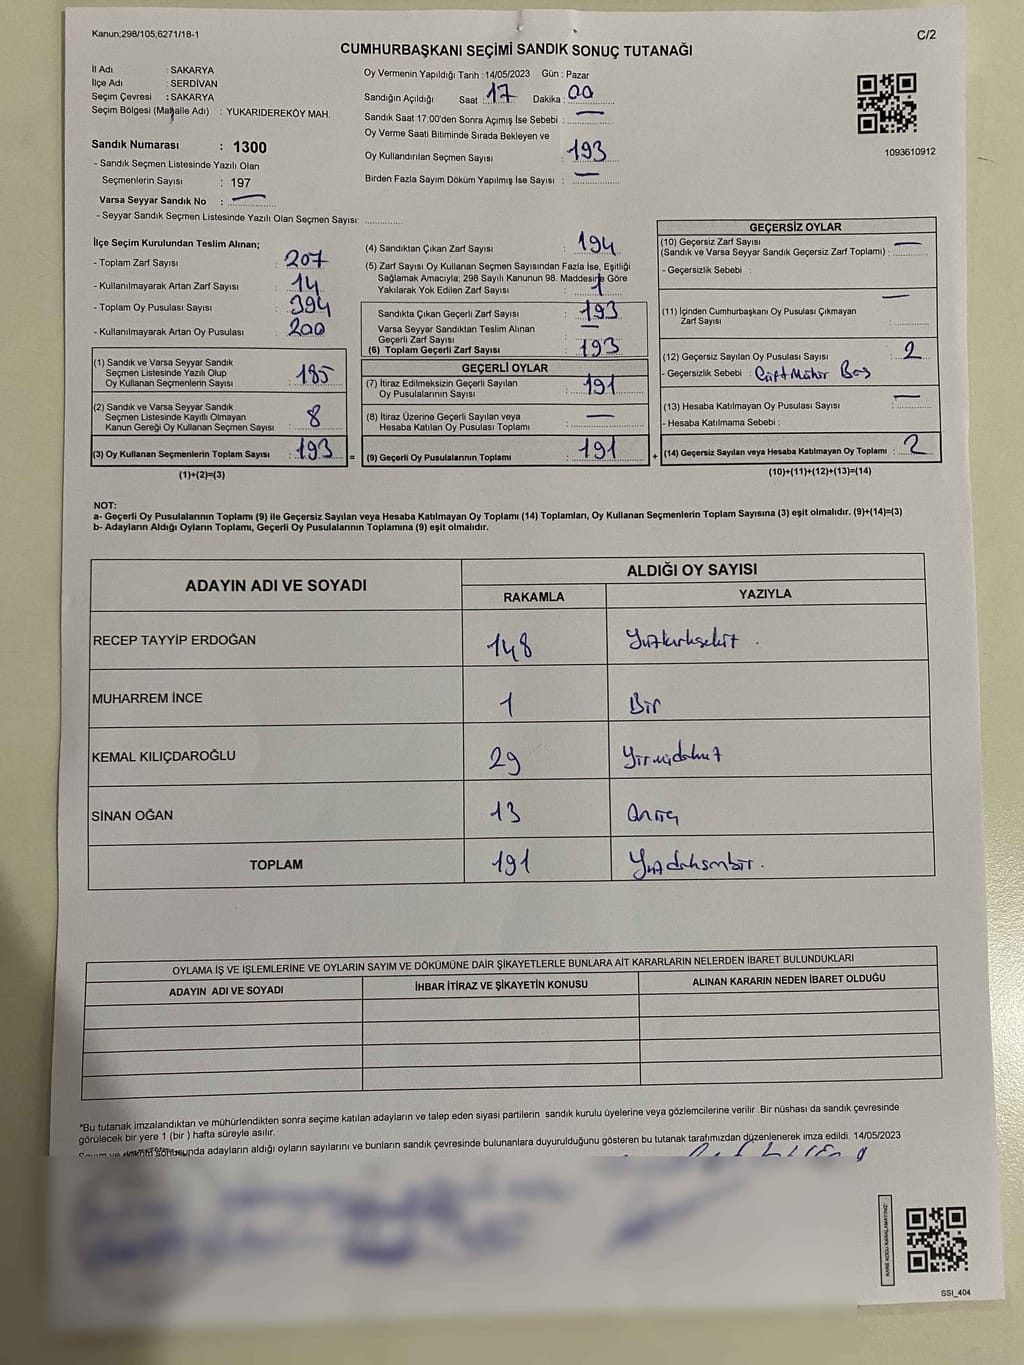 Kanun;298/105,6271/18-1
C/2
CUMHURBAŞKANI SEÇİMİ SANDIK SONUÇ TUTANAĞI
İl Adı : SAKARYA
İlçe Adı : SERDİVAN
Seçim Çevresi : SAKARYA
Seçim Bölgesi (Mahalle Adı) : YUKARIDEREKÖY MAH.
Sandık Numarası : 1300
- Sandık Seçmen Listesinde Yazılı Olan
Seçmenlerin Sayısı : 197
Varsa Seyyar Sandık No : —
- Seyyar Sandık Seçmen Listesinde Yazılı Olan Seçmen Sayısı:
Oy Vermenin Yapıldığı Tarih :14/05/2023 Gün : Pazar
Sandığın Açıldığı Saat : 17 Dakika : 00
Sandık Saat 17:00'den Sonra Açımış İse Sebebi : —
Oy Verme Saati Bitiminde Sırada Bekleyen ve
Oy Kullandırılan Seçmen Sayısı : 193
Birden Fazla Sayım Döküm Yapılmış İse Sayısı : —
1093610912
İlçe Seçim Kurulundan Teslim Alınan;
- Toplam Zarf Sayısı : 207
- Kullanılmayarak Artan Zarf Sayısı : 14
- Toplam Oy Pusulası Sayısı : 394
- Kullanılmayarak Artan Oy Pusulası : 200
(1) Sandık ve Varsa Seyyar Sandık
Seçmen Listesinde Yazılı Olup
Oy Kullanan Seçmenlerin Sayısı : 185
(2) Sandık ve Varsa Seyyar Sandık
Seçmen Listesinde Kayıtlı Olmayan
Kanun Gereği Oy Kullanan Seçmen Sayısı : 8
(3) Oy Kullanan Seçmenlerin Toplam Sayısı : 193
(1)+(2)=(3)
(4) Sandıktan Çıkan Zarf Sayısı : 194
(5) Zarf Sayısı Oy Kullanan Seçmen Sayısından Fazla İse, Eşitliği
Sağlamak Amacıyla; 298 Sayılı Kanunun 98. Maddesine Göre
Yakılarak Yok Edilen Zarf Sayısı : 1
Sandıkta Çıkan Geçerli Zarf Sayısı : 193
Varsa Seyyar Sandıktan Teslim Alınan
Geçerli Zarf Sayısı : —
(6) Toplam Geçerli Zarf Sayısı : 193
GEÇERLİ OYLAR
(7) İtiraz Edilmeksizin Geçerli Sayılan
Oy Pusulalarının Sayısı : 191
(8) İtiraz Üzerine Geçerli Sayılan veya
Hesaba Katılan Oy Pusulası Toplamı : —
= (9) Geçerli Oy Pusulalarının Toplamı : 191
GEÇERSİZ OYLAR
(10) Geçersiz Zarf Sayısı
(Sandık ve Varsa Seyyar Sandık Geçersiz Zarf Toplamı) : —
- Geçersizlik Sebebi :
(11) İçinden Cumhurbaşkanı Oy Pusulası Çıkmayan
Zarf Sayısı : —
(12) Geçersiz Sayılan Oy Pusulası Sayısı : 2
- Geçersizlik Sebebi : Çift Mühür Bas
(13) Hesaba Katılmayan Oy Pusulası Sayısı : —
- Hesaba Katılmama Sebebi :
+ (14) Geçersiz Sayılan veya Hesaba Katılmayan Oy Toplamı : 2
(10)+(11)+(12)+(13)=(14)
NOT:
a- Geçerli Oy Pusulalarının Toplamı (9) ile Geçersiz Sayılan veya Hesaba Katılmayan Oy Toplamı (14) Toplamları, Oy Kullanan Seçmenlerin Toplam Sayısına (3) eşit olmalıdır. (9)+(14)=(3)
b- Adayların Aldığı Oyların Toplamı, Geçerli Oy Pusulalarının Toplamına (9) eşit olmalıdır.
ADAYIN ADI VE SOYADI
ALDIĞI OY SAYISI
RAKAMLA YAZIYLA
RECEP TAYYİP ERDOĞAN 148 Yüzkırksekiz.
MUHARREM İNCE 1 Bir
KEMAL KILIÇDAROĞLU 29 Yirmidokuz
SİNAN OĞAN 13 Onüç
TOPLAM 191 Yüzdoksanbir.
OYLAMA İŞ VE İŞLEMLERİNE VE OYLARIN SAYIM VE DÖKÜMÜNE DAİR ŞİKAYETLERLE BUNLARA AİT KARARLARIN NELERDEN İBARET BULUNDUKLARI
ADAYIN ADI VE SOYADI İHBAR İTİRAZ VE ŞİKAYETİN KONUSU ALINAN KARARIN NEDEN İBARET OLDUĞU
*Bu tutanak imzalandıktan ve mühürlendikten sonra seçime katılan adayların ve talep eden siyasi partilerin sandık kurulu üyelerine veya gözlemcilerine verilir .Bir nüshası da sandık çevresinde
görülecek bir yere 1 (bir ) hafta süreyle asılır.
Sayım ve döküm sonucunda adayların aldığı oyların sayılarını ve bunların sandık çevresinde bulunanlara duyurulduğunu gösteren bu tutanak tarafımızdan düzenlenerek imza edildi. 14/05/2023
SSI_404